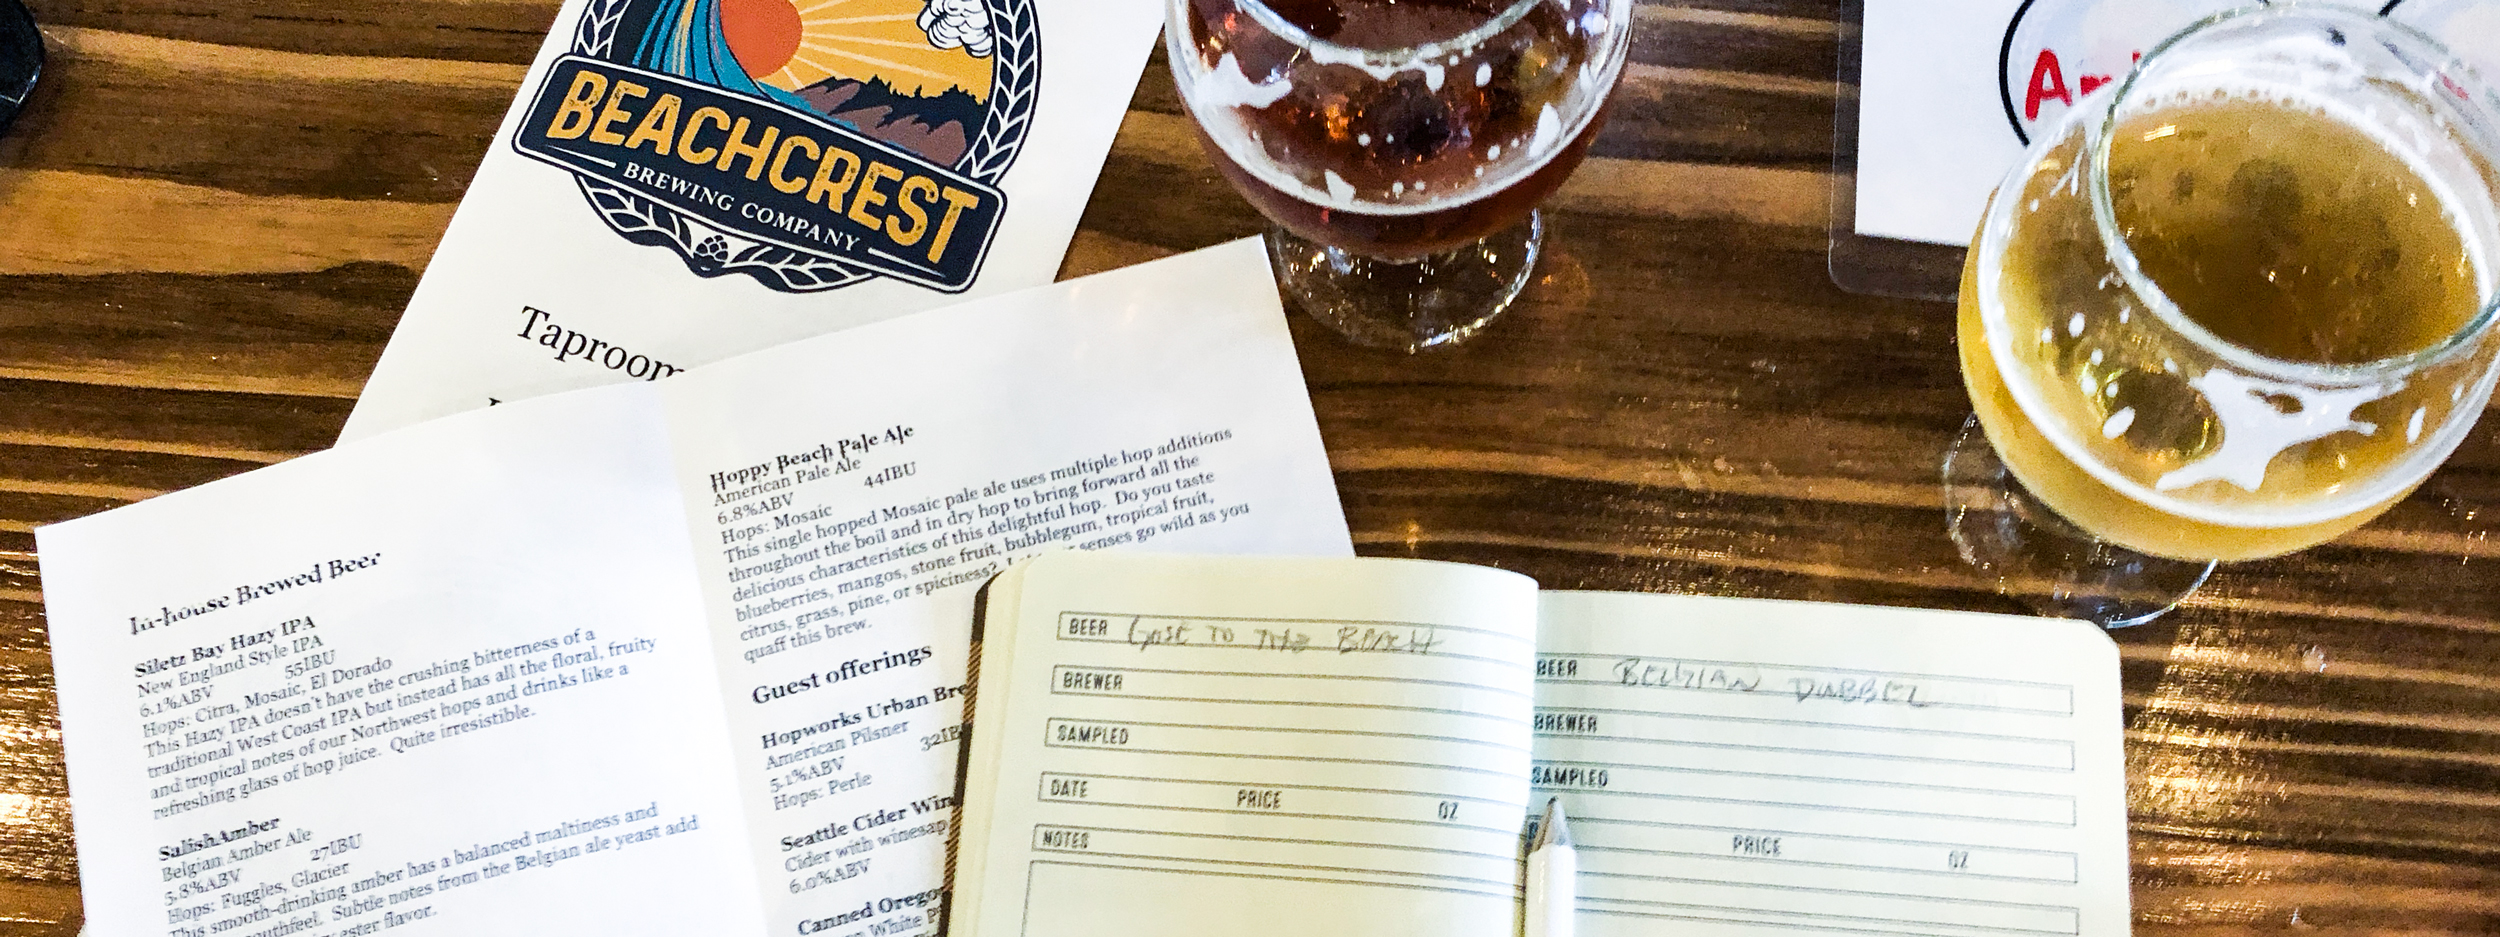 BEACHCREST
BREWING COMPANY
Taproom
In-house Brewed Beer
Siletz Bay Hazy IPA
New England Style IPA
6.1%ABV 55IBU
Hops: Citra, Mosaic, El Dorado
This Hazy IPA doesn't have the crushing bitterness of a
traditional West Coast IPA but instead has all the floral, fruity
and tropical notes of our Northwest hops and drinks like a
refreshing glass of hop juice. Quite irresistible.
Salish Amber
Belgian Amber Ale
5.8%ABV 27IBU
Hops: Fuggles, Glacier
This smooth-drinking amber has a balanced maltiness and
Subtle notes from the Belgian ale yeast add
flavor.
Hoppy Beach Pale Ale
American Pale Ale
6.8%ABV 44IBU
Hops: Mosaic
This single hopped Mosaic pale ale uses multiple hop additions
throughout the boil and in dry hop to bring forward all the
delicious characteristics of this delightful hop. Do you taste
blueberries, mangos, stone fruit, bubblegum, tropical fruit,
citrus, grass, pine, or spiciness? senses go wild as you
quaff this brew.
Guest offerings
Hopworks Urban Bre
American Pilsner
5.1%ABV 32IB
Hops: Perle
Seattle Cider Win
Cider with winesap
6.0%ABV
Canned Orego
White
BEER GOSE TO THE BEACH
BREWER
SAMPLED
DATE PRICE OZ
NOTES
BEER BELGIAN DUBBEL
BREWER
SAMPLED
PRICE OZ
Am